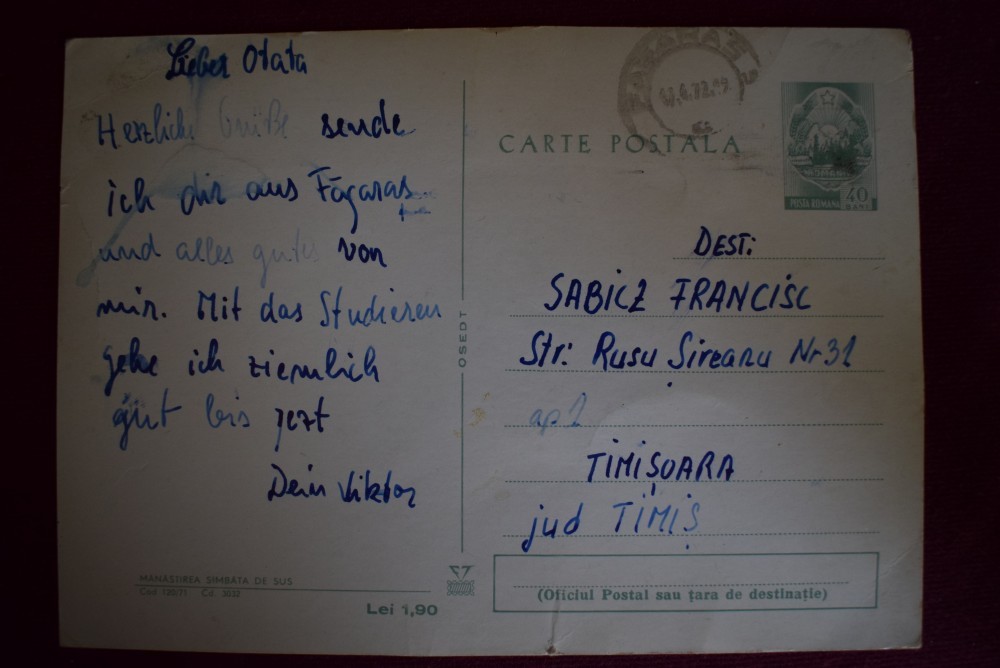 Lieber Otata
Herzliche Grüße sende
ich dir aus Făgaras
und alles gutes von
mir. Mit das Studieren
gehe ich ziemlich
gut bis jezt
Dein Viktor
MĂNĂSTIREA SÎMBĂTA DE SUS
Cod 120/71 Cd. 3032
Lei 1,90
OSEDT
CARTE POȘTALĂ
POSTA ROMANA
40
BANI
DEST:
SABICZ FRANCISC
Str: Rusu Șireanu Nr 31
ap 2
TIMIȘOARA
jud TIMIȘ
(Oficiul Postal sau țara de destinație)